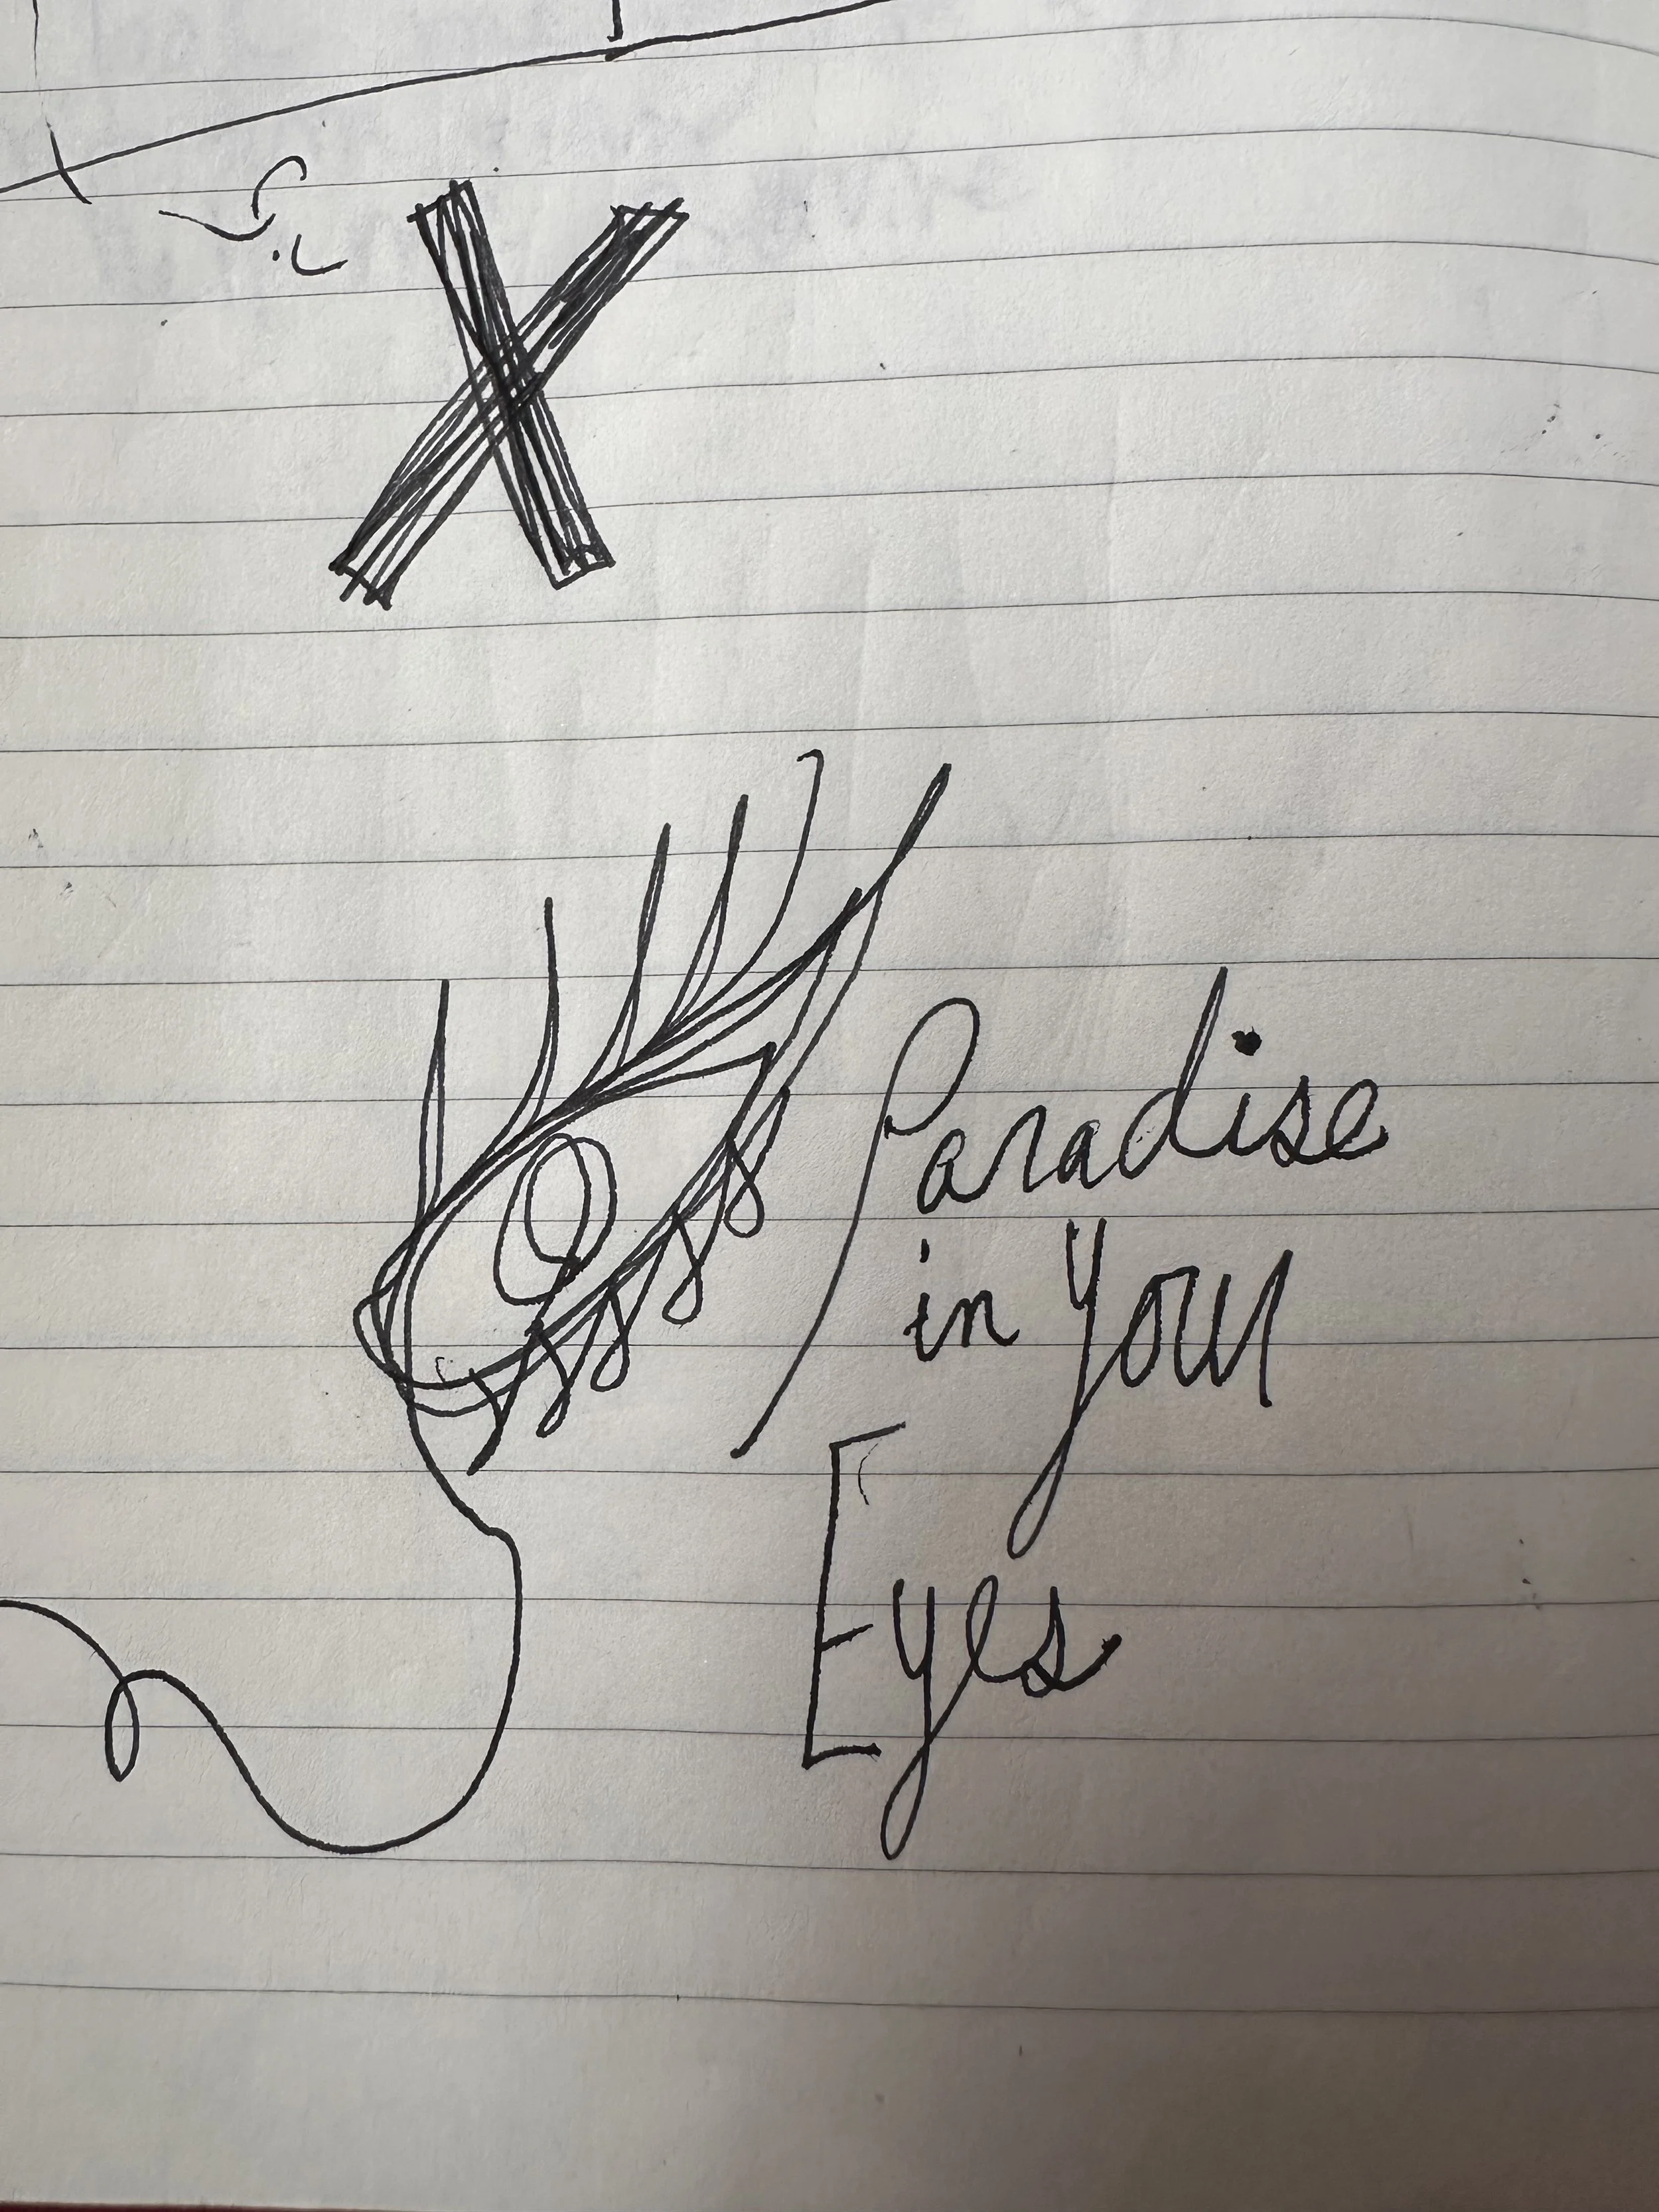 X
Paradise
in Your
Eyes